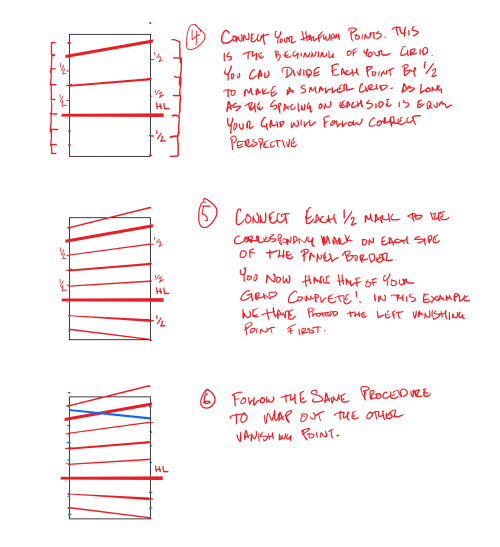 4 CONNECT YOUR HALFWAY POINTS. THIS
IS THE BEGINNING OF YOUR GRID.
YOU CAN DIVIDE EACH POINT BY 1/2
TO MAKE A SMALLER GRID. AS LONG
AS THE SPACING ON EACH SIDE IS EQUAL
YOUR GRID WILL FOLLOW CORRECT
PERSPECTIVE
1/2
1/2
1/2
1/2
HL
1/2
5 CONNECT EACH 1/2 MARK TO THE
CORRESPONDING MARK ON EACH SIDE
OF THE PANEL BORDER.
YOU NOW HAVE HALF OF YOUR
GRID COMPLETE! IN THIS EXAMPLE
WE HAVE THE LEFT VANISHING
POINT FIRST.
1/2
1/2
1/2
1/2
HL
1/2
6 FOLLOW THE SAME PROCEDURE
TO MAP OUT THE OTHER
VANISHING POINT.
HL